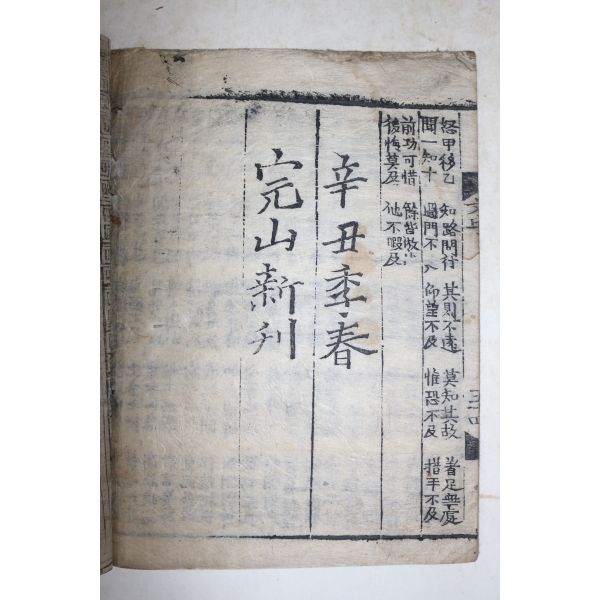 怒甲移乙 知路問行 其則不遠 莫知其故 著足無處
聞一知十 過門不入 仰望不及 惟恐不及 措手不及
前功可惜 餘皆倣此
後悔莫及 他不暇及
辛丑季春
完山新刊